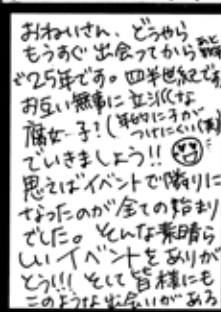 おねいさん、どうやら
もうすぐ出会ってから
25年です。四半世紀です
お互い無事に立派な
腐女子!(年的に子が
つけにくい(笑)
でいきましょう!!
思えばイベントで隣りに
なったのが全ての始まり
でした。そんな素晴ら
しいイベントをありが
とう!!! そして皆様にも
このような出会いがある